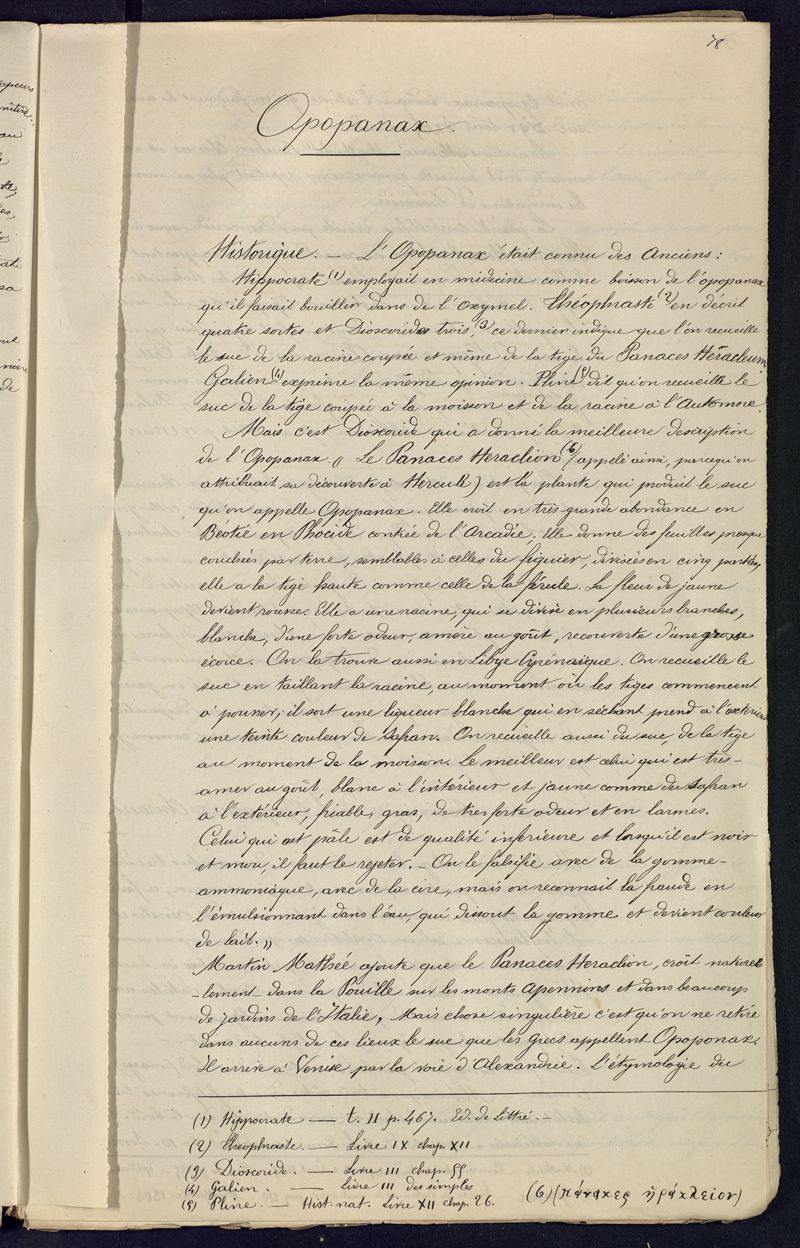 78
Opopanax.
Historique. — L'Opopanax était connu des Anciens :
Hippocrate (1) employait en médecine comme boisson de l'opopanax
qu'il faisait bouillir dans de l'Oxymel. Théophraste (2) en décrit
quatre sortes et Dioscoride trois, (3) ce dernier indique que l'on recueille
le suc de la racine coupée et même de la tige du Panaces Héracleum
Galien (4) exprime la même opinion. Pline (5) dit qu'on recueille le
suc de la tige coupée à la moisson et de la racine à l'Automne.
Mais c'est Dioscoride qui a donné la meilleure description
de l'Opopanax. « Le Panaces Heraclion (6) (appelé ainsi, parcequ'on
attribuait sa découverte à Hercule) est la plante qui produit le suc
qu'on appelle Opopanax. Elle croit en très grande abondance en
Béotie en Phocide contrée de l'Arcadie. Elle donne des feuilles presque
couchées par terre, semblables à celles du figuier, divisées en cinq parties,
elle a la tige haute comme celle de la férule. La fleur de jaune
devient rousse. Elle a une racine, qui se divise en plusieurs branches,
blanche, d'une forte odeur, amère au goût, recouverte d'une grosse
écorce. On la trouve aussi en Libye Cyrénaïque. On recueille le
suc en taillant la racine, au moment où les tiges commencent
à pousser; il sort une liqueur blanche qui en séchant prend à l'extérieur
une teinte couleur de Safran. On recueille aussi du suc, de la tige
au moment de la moisson. Le meilleur est celui qui est très-
amer au goût, blanc à l'intérieur et jaune comme du safran
à l'extérieur, friable, gras, de tres forte odeur et en larmes.
Celui qui est pâle est de qualité inférieure et lorsqu'il est noir
et mou, il faut le rejeter. — On le falsifie avec de la gomme-
ammoniaque, avec de la cire, mais on reconnait la fraude en
l'émulsionnant dans l'eau, qui, dissout la gomme et devient couleur
de lait. »
Martin Mathée ajoute que le Panaces Heraclion, croît naturel
-lement dans la Pouille sur les monts Apennins et dans beaucoup
de jardins de l'Italie, Mais chose singulière c'est qu'on ne retire
dans aucuns de ces lieux le suc que les Grecs appellent Opoponax.
Il arrive à Venise par la voie d'Alexandrie. L'étymologie du
(1) Hippocrate — t. II p. 467. Ed. de Littré. —
(2) Théophraste. — Livre IX chap. XII
(3) Dioscoride. — Livre III chap. 55
(4) Galien. — Livre III des simples
(5) Pline. — Hist. nat. Livre XII chap. 26.
(6) (πάνακες ἡράκλειον)